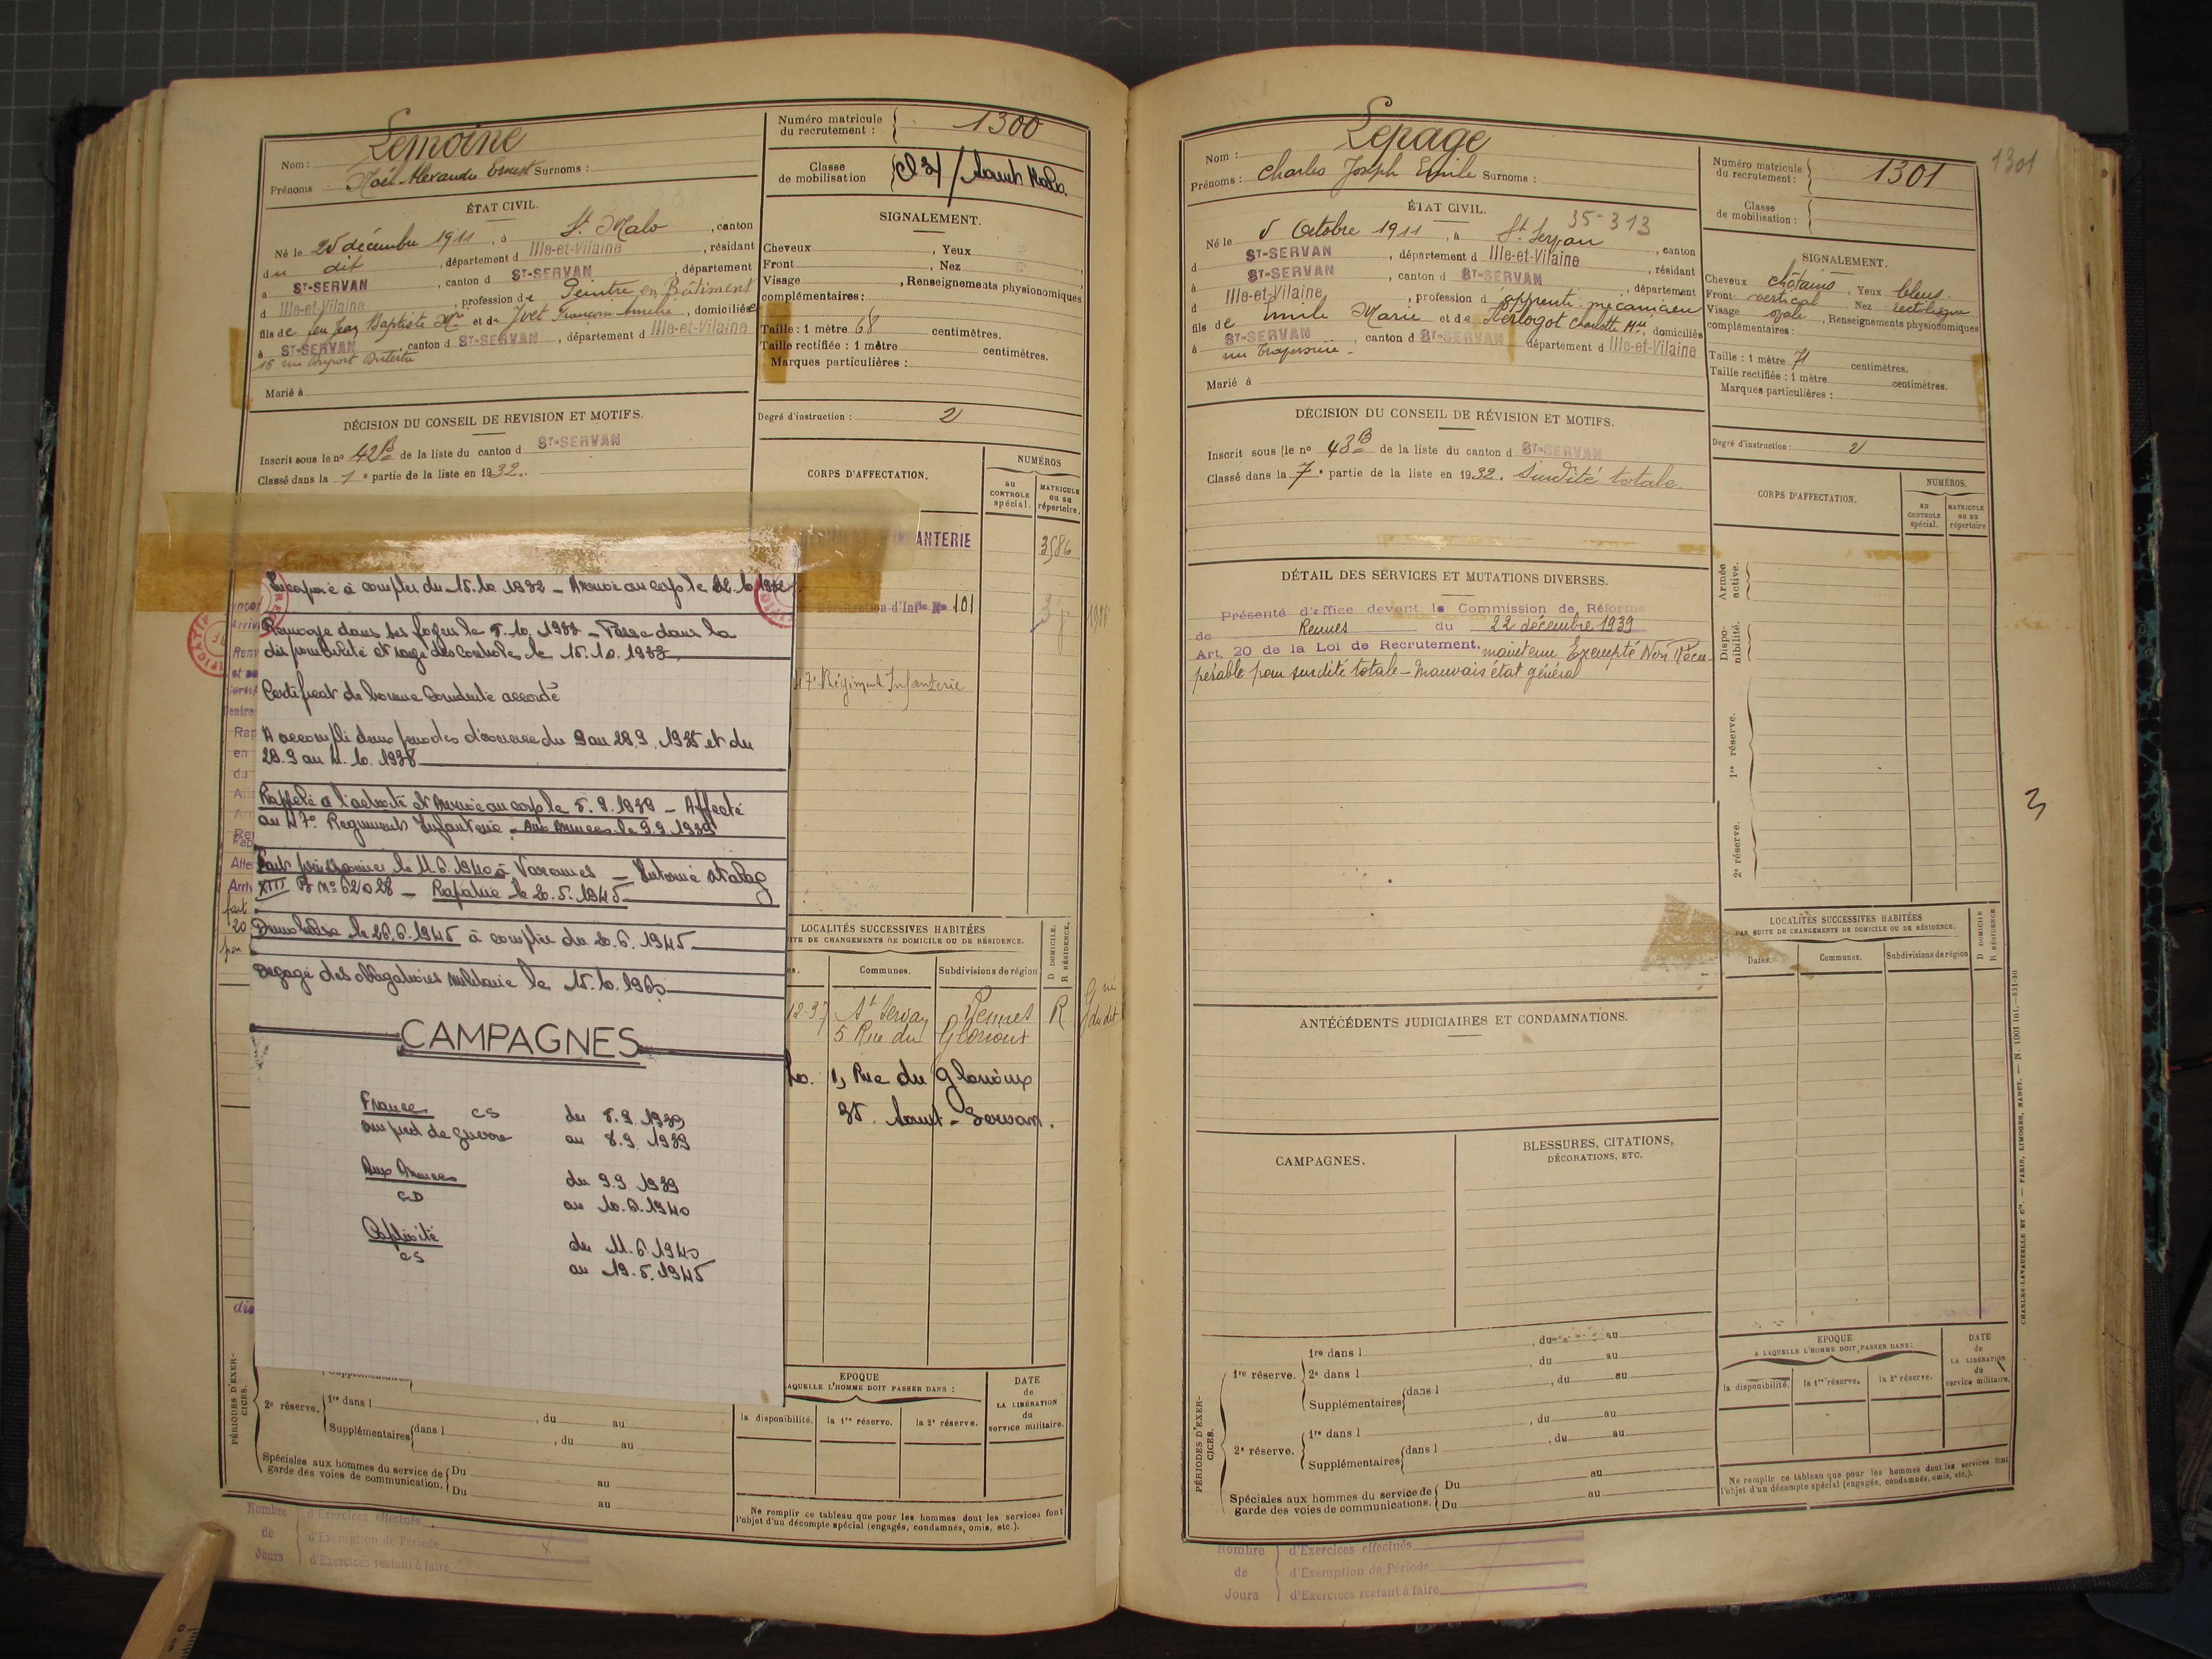 Nom : Lemoine
Prénoms Noël-Alexandre Ernest Surnoms :
ÉTAT CIVIL.
Né le 25 décembre 1911, à St Malo, canton
du dit, département d Ille-et-Vilaine, résidant
à ST-SERVAN, canton d ST-SERVAN, département
d Ille-et-Vilaine, profession de Peintre en Bâtiment
fils de feu Jean Baptiste Mie et de Juet Françoise Amélie, domiciliée
à ST-SERVAN, canton d ST-SERVAN, département d Ille-et-Vilaine
15 rue
Marié à
DÉCISION DU CONSEIL DE REVISION ET MOTIFS.
Inscrit sous le no 42B de la liste du canton d ST-SERVAN
Classé dans la 1e partie de la liste en 1932.
Numéro matricule du recrutement : 1300
Classe de mobilisation Cl 31 / Saint Malo.
SIGNALEMENT.
Cheveux , Yeux
Front , Nez
Visage , Renseignements physionomiques
complémentaires :
Taille : 1 mètre 68 centimètres.
Taille rectifiée : 1 mètre centimètres.
Marques particulières :
Degré d'instruction : 2
CORPS D'AFFECTATION.
NUMÉROS
au CONTROLE spécial.
MATRICULE ou au répertoire.
ANTERIE 3586
d'Infie No 101
47e Régiment Infanterie
Incorporé à compter du 15.10.1932 – Arrivé au corps le 22.10.1932
Renvoyé dans ses foyers le 5.10.1933 – Passe dans la
disponibilité et rayé des controles le 15.10.1933
Certificat de bonne conduite accordé
A accompli deux périodes d'exercice du 9 au 28.9.1935 et du
29.9 au 4.10.1938
Rappelé à l'activité et Arrivé au corps le 5.9.1939 – Affecté
au 47e Regiment Infanterie – Aux Armées le 9.9.1939
Fait prisonnier le 11.6.1940 à Varennes – Interné Stalag
XIII B No 62028 – Rapatrié le 20.5.1945
Démobilisé le 26.6.1945 à compter du 20.6.1945
Dégagé des obligations militaire le 15.10.1960
CAMPAGNES
France CS du 5.9.1939
sur pied de guerre au 8.9.1939
Aux Armées du 9.9 1939
CD au 10.6.1940
Captivité du 11.6.1940
CS au 19.5.1945
LOCALITÉS SUCCESSIVES HABITÉES
ITE DE CHANGEMENTS DE DOMICILE OU DE RÉSIDENCE.
D DOMICILE.
R RÉSIDENCE.
Communes. Subdivisions de région
12-37 St Servan Rennes R
5 Rue du Glorioux
1, Rue du Glorioux
35. Saint-Servan.
PÉRIODES D'EXERCICES.
2e réserve. 1re dans l , du au
Supplémentaires dans l , du au
Spéciales aux hommes du service de Du au
garde des voies de communication. Du au
EPOQUE
LAQUELLE L'HOMME DOIT PASSER DANS :
la disponibilité. la 1re réserve. la 2e réserve.
DATE de LA LIBÉRATION du service militaire.
Ne remplir ce tableau que pour les hommes dont les services font
l'objet d'un décompte spécial (engagés, condamnés, omis, etc.).
Nombre de Jours
d'Exercices effectués
d'Exemption de Période
d'Exercices restant à faire
1301
Nom : Lepage
Prénoms : Charles Joseph Emile Surnoms :
ÉTAT CIVIL. 35-313
Né le 5 Octobre 1911, à St Servan, canton
d ST-SERVAN, département d Ille-et-Vilaine, résidant
à ST-SERVAN, canton d ST-SERVAN, département
d Ille-et-Vilaine, profession d'apprenti mécanicien
fils de Emile Marie et de Herlogot Charlotte Mie, domiciliés
à ST-SERVAN, canton d ST-SERVAN département d Ille-et-Vilaine
rue
Marié à
DÉCISION DU CONSEIL DE RÉVISION ET MOTIFS.
Inscrit sous le no 43B de la liste du canton d ST-SERVAN
Classé dans la 7e partie de la liste en 1932. Surdité totale.
DÉTAIL DES SERVICES ET MUTATIONS DIVERSES.
Présenté d'office devant la Commission de Réforme
de Rennes du 22 décembre 1939
Art. 20 de la Loi de Recrutement. maintenu Exempté Non Récu-
pérable pour surdité totale – Mauvais état général
ANTÉCÉDENTS JUDICIAIRES ET CONDAMNATIONS.
CAMPAGNES.
BLESSURES, CITATIONS,
DÉCORATIONS, ETC.
Numéro matricule du recrutement : 1301
Classe de mobilisation :
SIGNALEMENT.
Cheveux châtains, Yeux bleus.
Front vertical, Nez rectiligne
Visage ovale, Renseignements physionomiques
complémentaires :
Taille : 1 mètre 71 centimètres.
Taille rectifiée : 1 mètre centimètres.
Marques particulières :
Degré d'instruction : 2
CORPS D'AFFECTATION.
NUMÉROS.
au CONTROLE spécial.
MATRICULE ou au répertoire
Armée active.
Disponibilité.
1re réserve.
2e réserve.
3
LOCALITÉS SUCCESSIVES HABITÉES
PAR SUITE DE CHANGEMENTS DE DOMICILE OU DE RÉSIDENCE.
Dates. Communes. Subdivisions de région
D DOMICILE
R RÉSIDENCE
PÉRIODES D'EXERCICES.
1re réserve. 1re dans l , du au
2e dans l , du au
Supplémentaires dans l , du au
2e réserve. 1re dans l , du au
Supplémentaires dans l , du au
Spéciales aux hommes du service de Du au
garde des voies de communications. Du au
EPOQUE
A LAQUELLE L'HOMME DOIT PASSER DANS :
la disponibilité. la 1re réserve. la 2e réserve.
DATE de LA LIBÉRATION du service militaire.
Ne remplir ce tableau que pour les hommes dont les services font
l'objet d'un décompte spécial (engagés, condamnés, omis, etc.).
CHARLES-LAVAUZELLE ET Cie. — PARIS, LIMOGES, NANCY. — N. 1001 int.—831-30
Nombre de Jours
d'Exercices effectués
d'Exemption de Période
d'Exercices restant à faire